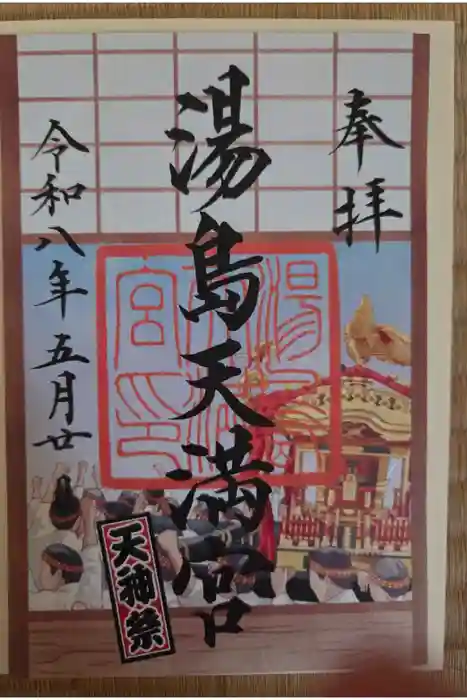 奉拝
湯島天満宮
令和八年五月廿
湯島
天満
宮印
天神祭